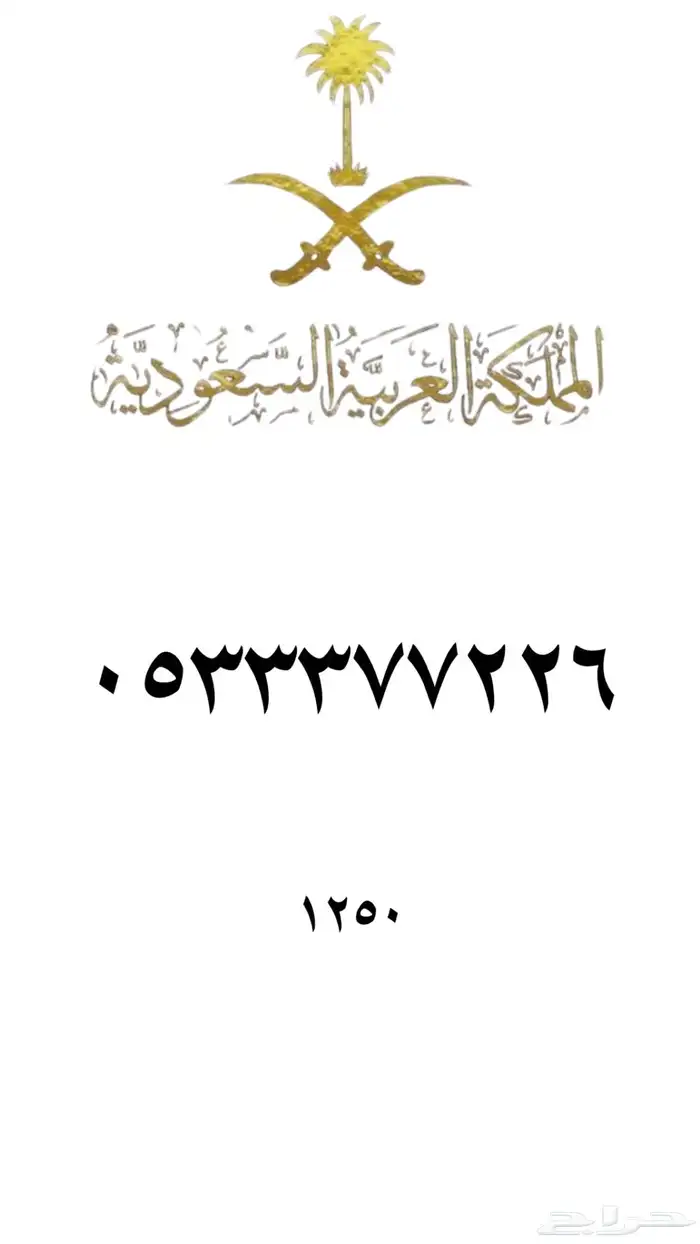 المملكة العربية السعودية
٠٥٣٣٣٧٧٢٢٦
١٢٥٠
حراج